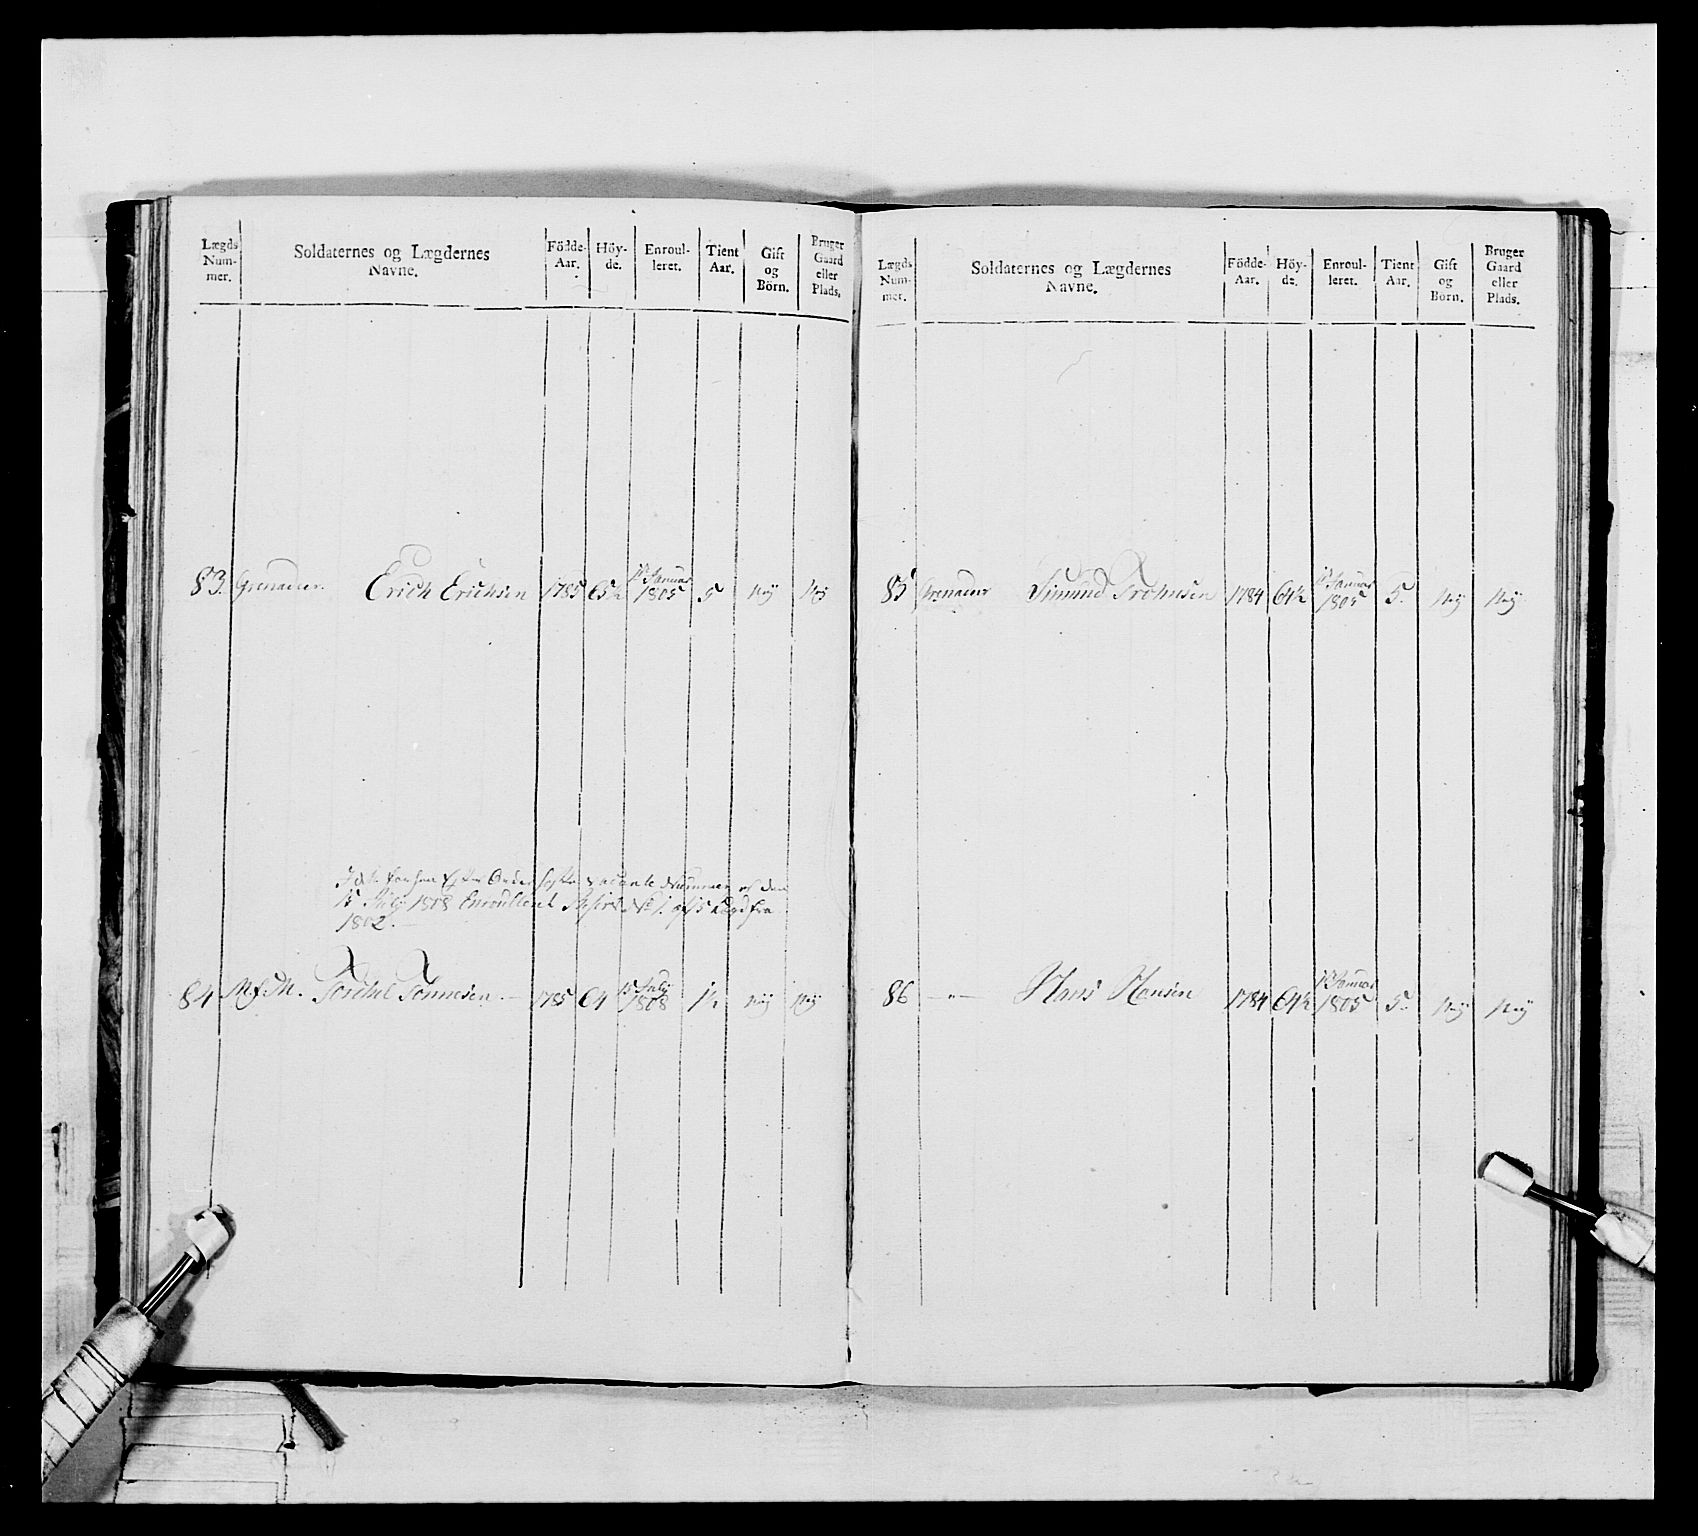 Lægds Num- mer. Soldaternes og Lægdernes Navne. Födde- Aar. Höy- de. Enroul- leret. Tient Aar. Gift og Börn. Bruger Gaard eller Plads.
83. Grenadeer. Erich Erichsen 1785 65½ 1ste Januar 1805 5 Nej Nej
15 July 1808 Enroulleret No 1. af 15 Lægd fra
1802.
84 M.f.M. Torchel Tønnesen. 1785 64 15 July 1808 1½ Nej Nej
Lægds Num- mer. Soldaternes og Lægdernes Navne. Födde- Aar. Höy- de. Enroul- leret. Tient Aar. Gift og Börn. Bruger Gaard eller Plads.
85 Grenadeer Simund 1784 64½ 1ste Januar 1805 5. Nej Nej
86 –"– Hans Hansen 1784 64½ 1ste Januar 1805 5. Nej Nej